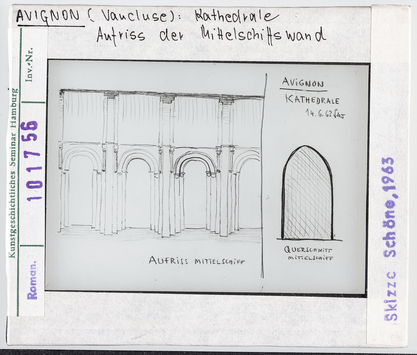 AVIGNON (Vaucluse): Kathedrale
Aufriss der Mittelschiffswand
Kunstgeschichtliches Seminar Hamburg
Inv.-Nr.
Roman.
101756
AVIGNON
KATHEDRALE
AUFRISS MITTELSCHIFF
QUERSCHNITT
MITTELSCHIFF
Skizze Schöne, 1963